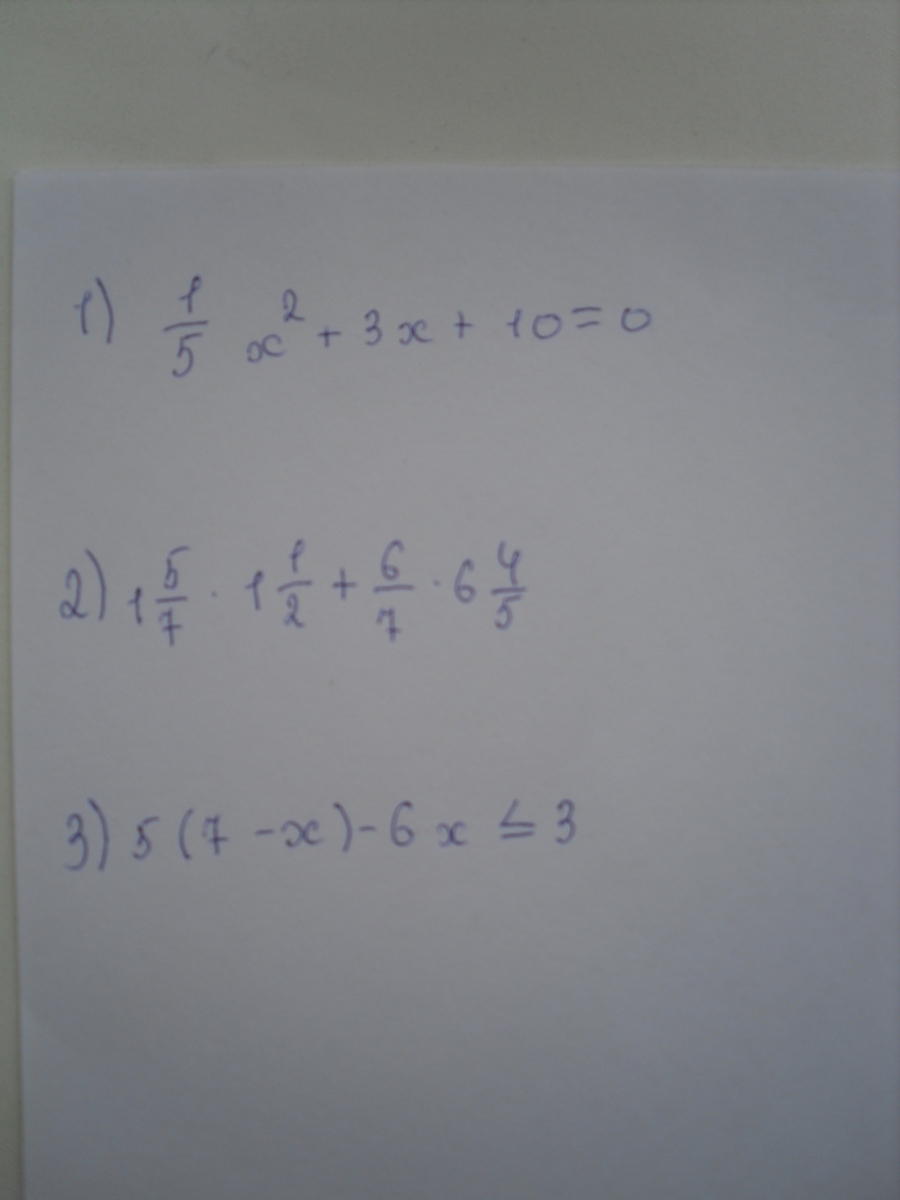 1) 1/5 x² + 3x + 10 = 0
2) 1 5/7 · 1 1/2 + 6/7 · 6 4/5
3) 5(7 - x) - 6x ≤ 3